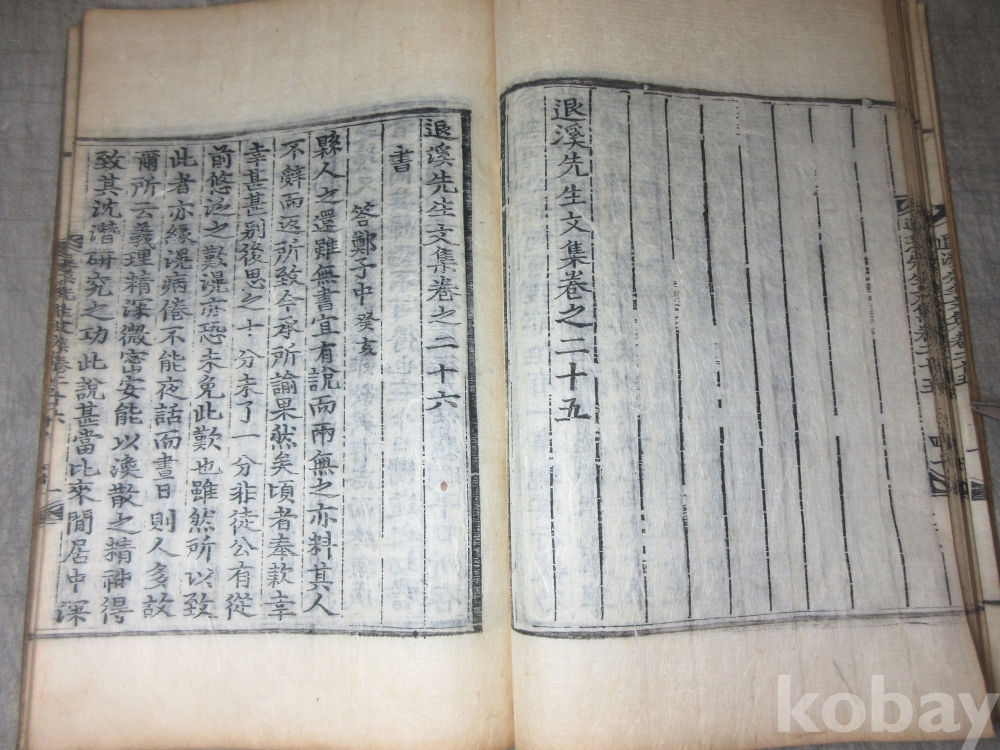 退溪先生文集卷之二十五
退溪先生文集卷之二十六
書
答鄭子中 癸亥
縣人之還雖無書宜有說而兩無之亦料其人
不辭而返所致今承所諭果然矣頃者奉款幸
幸甚甚別後思之十分未了一分非徒公有從
前悠泛之歎滉亦恐未免此歎也雖然所以致
此者亦緣滉病倦不能夜話而晝日則人多故
爾所云義理精深微密安能以渙散之精神得
致其沈潛研究之功此說甚當比來閒居中深
kobay